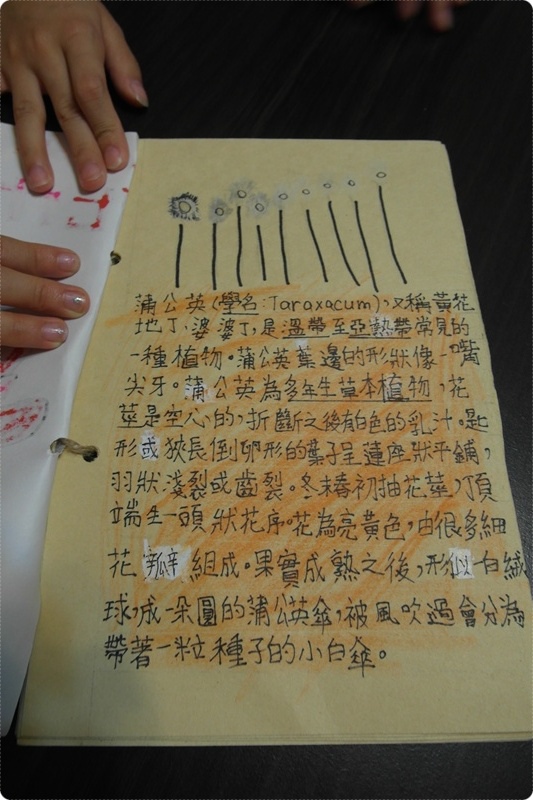 蒲公英(學名:Taraxacum),又稱黃花
地丁、婆婆丁,是溫帶至亞熱帶常見的
一種植物。蒲公英葉邊的形狀像一嘴
尖牙。蒲公英為多年生草本植物,花
莖是空心的,折斷之後有白色的乳汁。匙
形或狹長倒卵形的葉子呈蓮座狀平鋪,
羽狀淺裂或齒裂。冬末春初抽花莖,頂
端生一頭狀花序。花為亮黃色,由很多細
花瓣組成。果實成熟之後,形似一白絨
球,成一朵圓的蒲公英傘,被風吹過會分為
帶著一粒種子的小白傘。